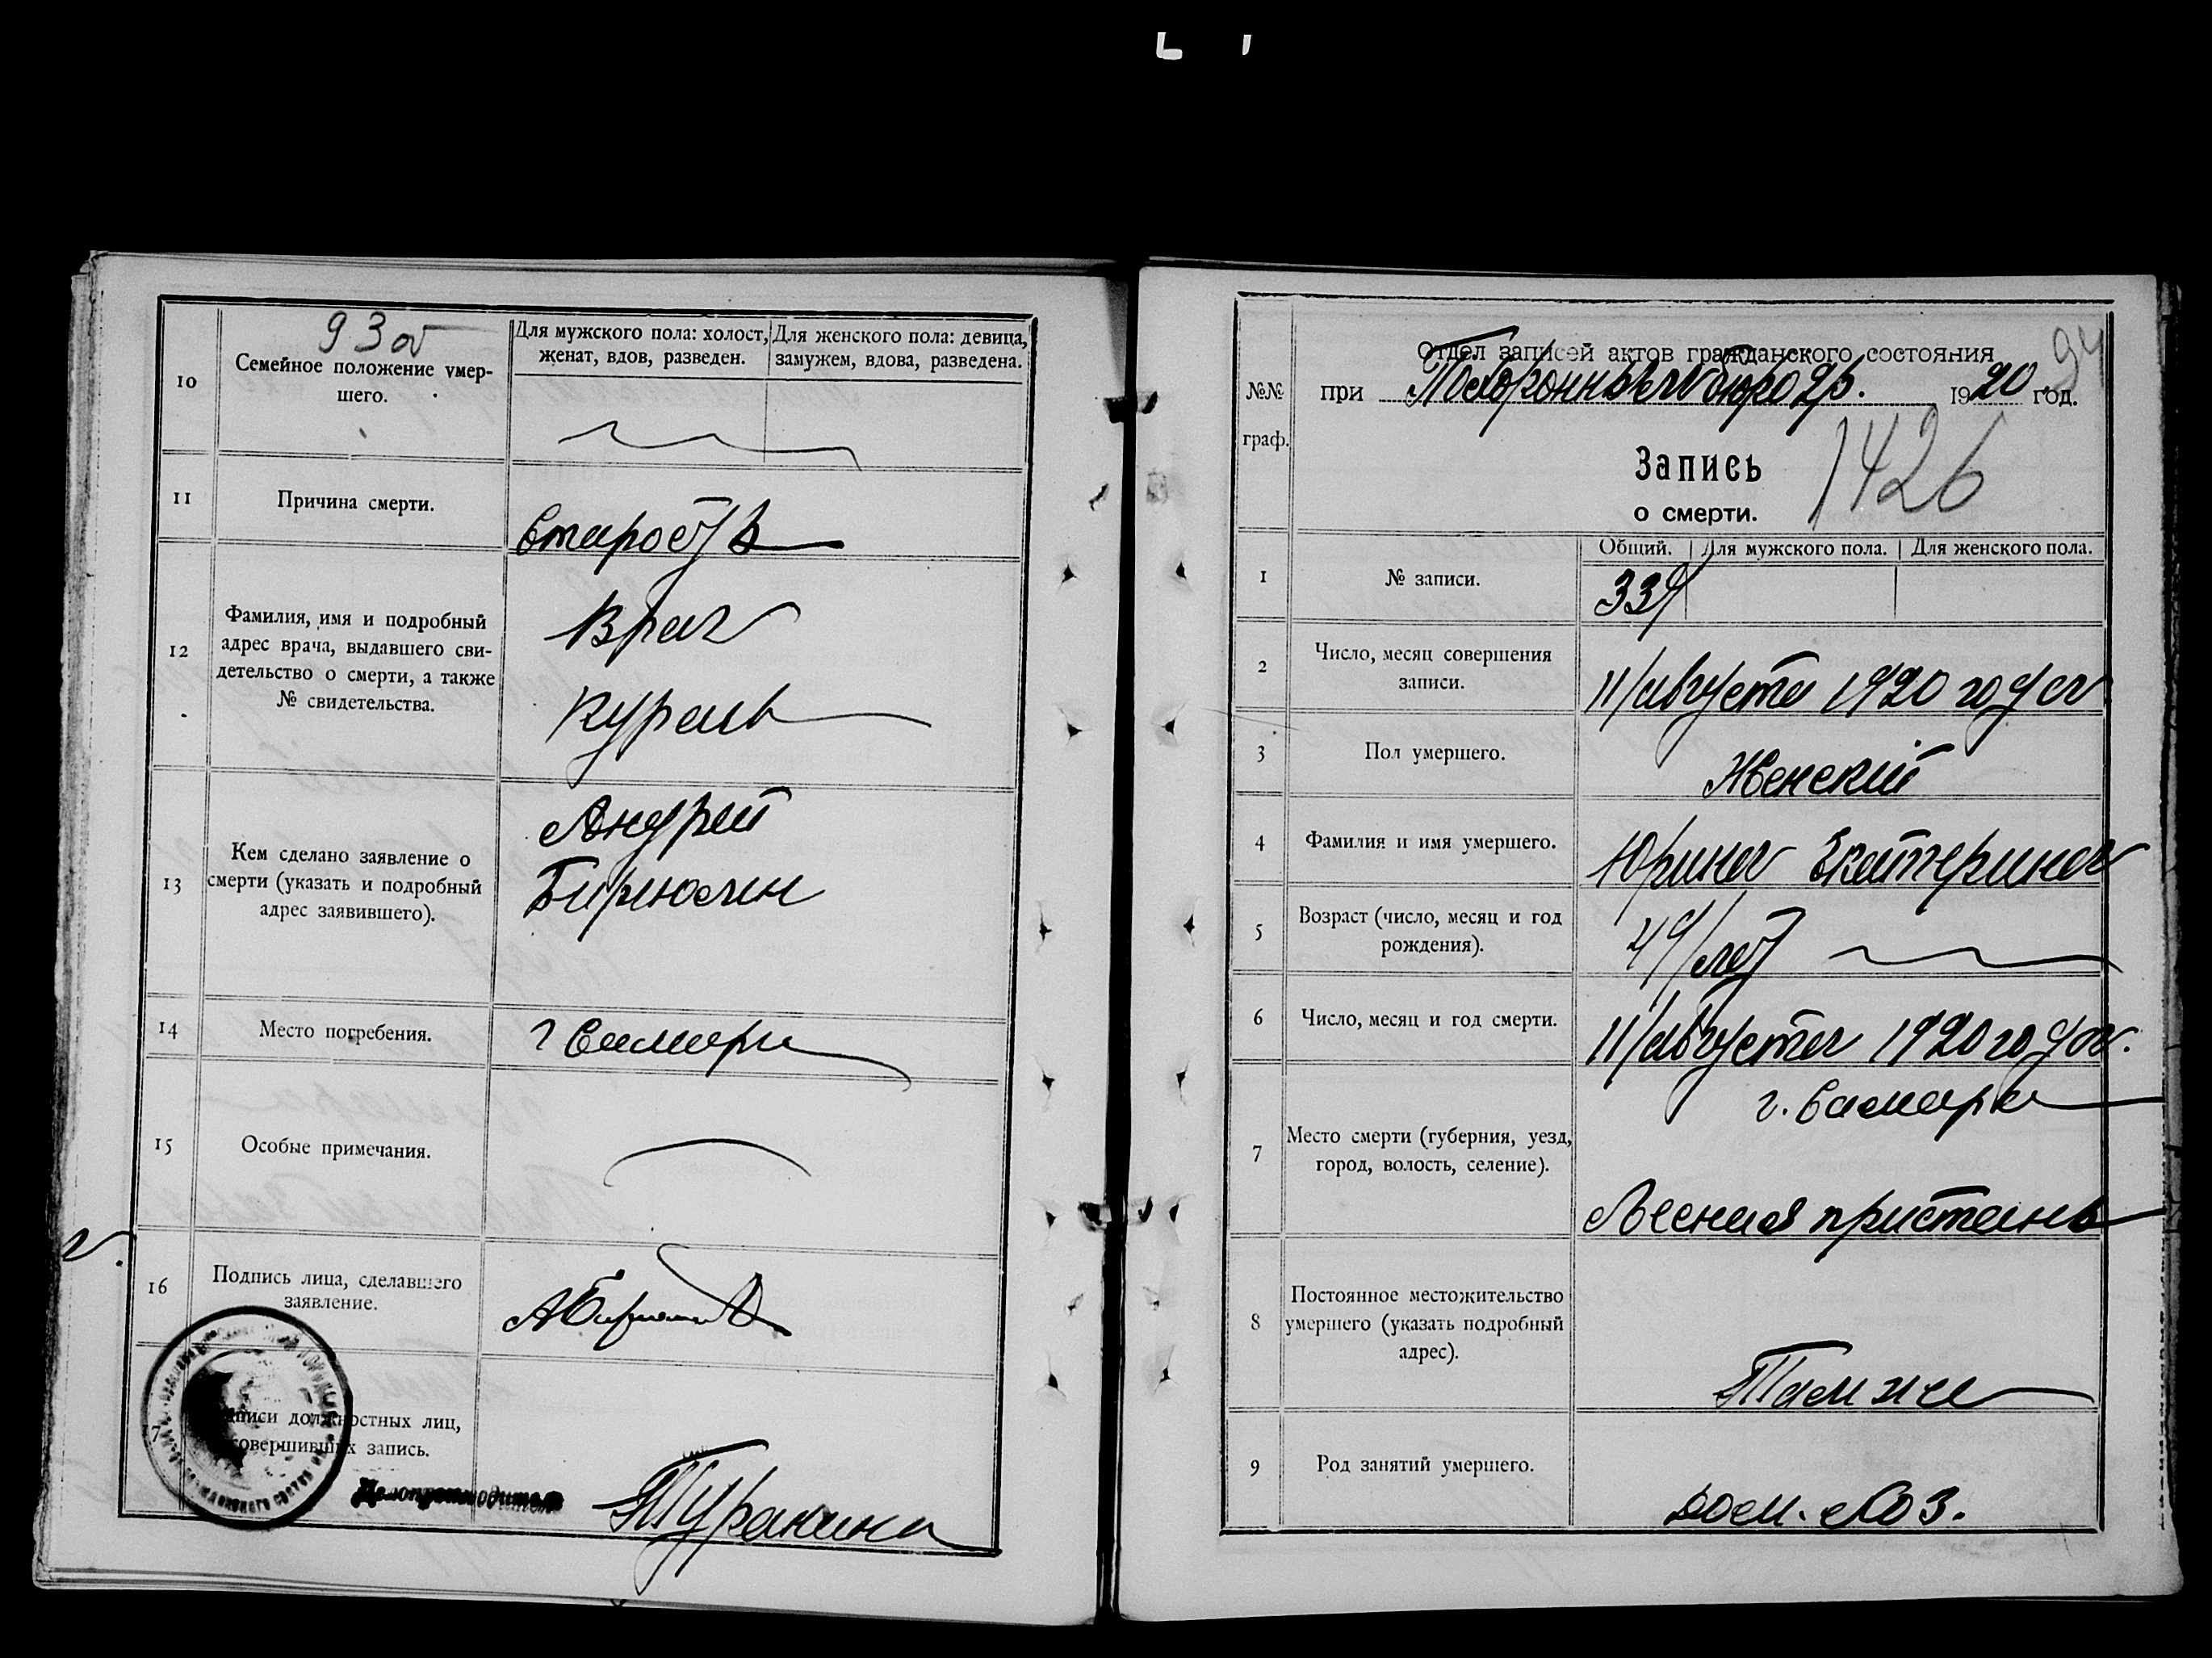 93 об
10
Семейное положение умер-
шего.
Для мужского пола: холост,
женат, вдов, разведен.
Для женского пола: девица,
замужем, вдова, разведена.
11
Причина смерти.
Старость
12
Фамилия, имя и подробный
адрес врача, выдавшего сви-
детельство о смерти, а также
№ свидетельства.
Врач
13
Кем сделано заявление о
смерти (указать и подробный
адрес заявившего).
Андрей
14
Место погребения.
г Самара
15
Особые примечания.
16
Подпись лица, сделавшего
заявление.
должностных лиц,
совершивших запись.
Делопроизводитель
94
№№
граф.
Отдел записей актов гражданского состояния
при Похоронном бюро 1920 год.
Запись
о смерти.
1426
Общий. Для мужского пола. Для женского пола.
1
№ записи.
2
Число, месяц совершения
записи.
11/августа 1920 года
3
Пол умершего.
Женский
4
Фамилия и имя умершего.
Юрина Екатерина
5
Возраст (число, месяц и год
рождения).
лет
6
Число, месяц и год смерти.
11/августа 1920 года.
7
Место смерти (губерния, уезд,
город, волость, селение).
г. Самара
Лесная пристань
8
Постоянное местожительство
умершего (указать подробный
адрес).
Там же
9
Род занятий умершего.
дом. хоз.